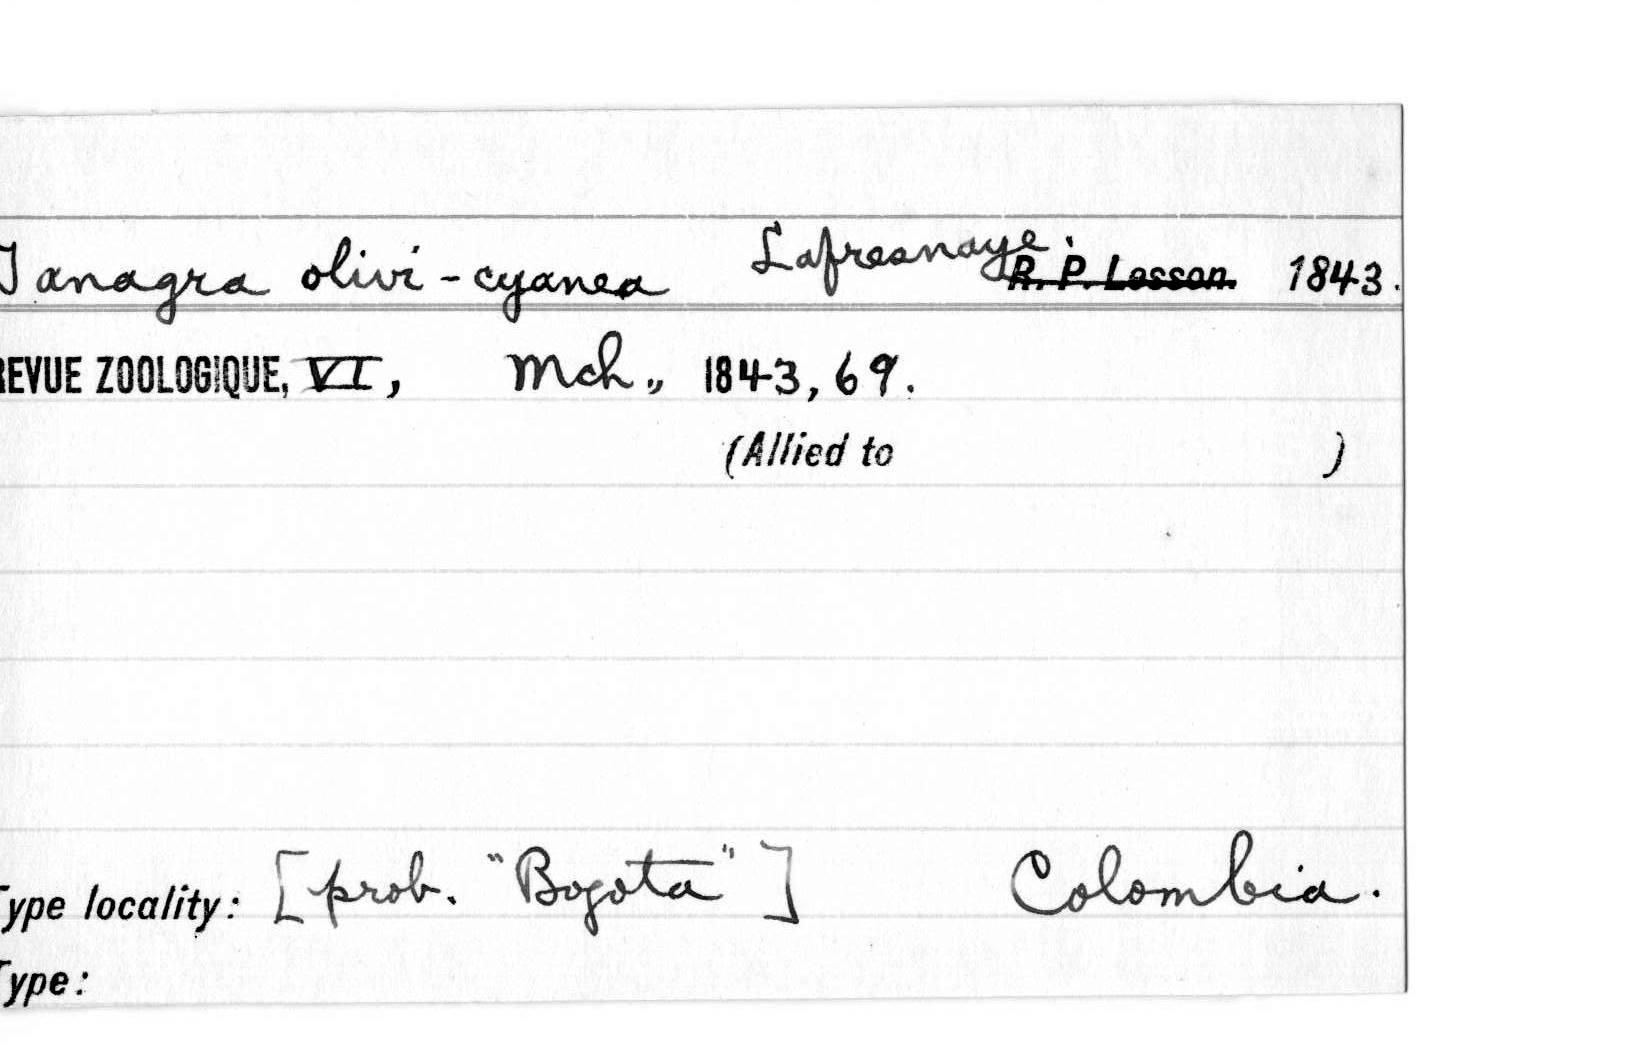 Tanagra olivi-cyanea Lafresnaye. R. P. Lesson. 1843.
REVUE ZOOLOGIQUE, VI, Mch., 1843, 69.
(Allied to )
Type locality: [prob. "Bogota"] Colombia.
Type: